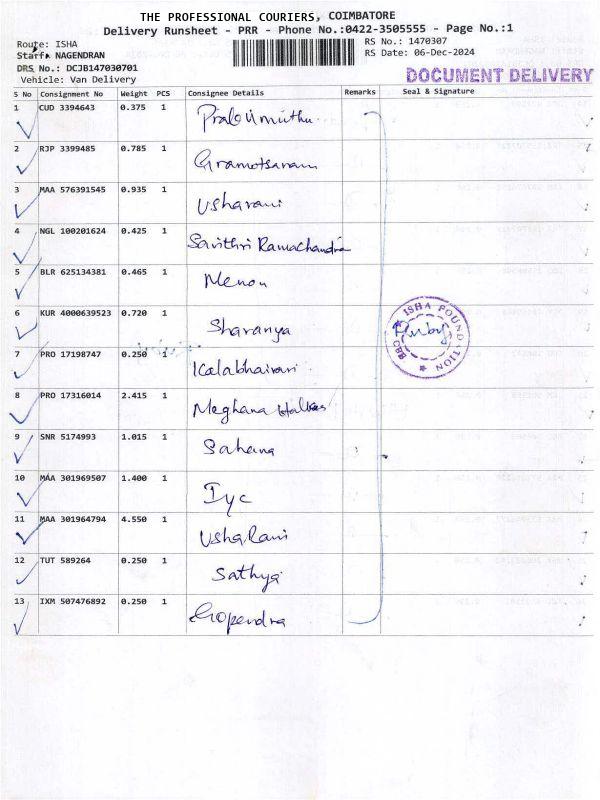 THE PROFESSIONAL COURIERS, COIMBATORE
Delivery Runsheet - PRR - Phone No.:0422-3505555 - Page No.:1
Route: ISHA
RS No.: 1470307
Staff: NAGENDRAN
RS Date: 06-Dec-2024
DRS No.: DCJB147030701
DOCUMENT DELIVERY
Vehicle: Van Delivery
S No Consignment No Weight PCS Consignee Details Remarks Seal & Signature
1 CUD 3394643 0.375 1
2 RJP 3399485 0.785 1
3 MAA 576391545 0.935 1 Usharani
4 NGL 100201624 0.425 1 Savithri Ramachandra
5 BLR 625134381 0.465 1 Menon
6 KUR 4000639523 0.720 1 Sharanya
ISHA FOUNDATION
BBC
7 PRO 17198747 0.250 1 Kalabhairavi
8 PRO 17316014 2.415 1 Meghana
9 SNR 5174993 1.015 1 Sahana
10 MAA 301969507 1.400 1 Iyc
11 MAA 301964794 4.550 1 Usha Rani
12 TUT 589264 0.250 1 Sathya
13 IXM 507476892 0.250 1 Gopendra